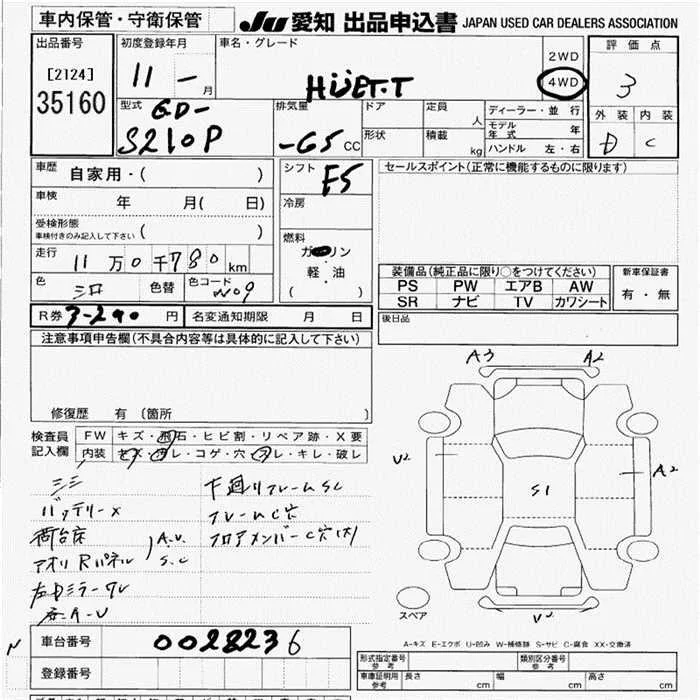 車内保管・守衛保管
JU 愛知 出品申込書 JAPAN USED CAR DEALERS ASSOCIATION
出品番号
[2124]
35160
初度登録年月
11 - 月
車名・グレード
2WD
4WD
評価点
3
外装 内装
D C
型式
GD-
S210P
排気量
-65 CC
ドア
形状
定員 人
積載 kg
ディーラー・並行
モデル年式 年
ハンドル 左・右
車歴 自家用・( )
車検 年 月( 日)
受検形態
車検付きのみ記入して下さい ( )
走行 11 万 0 千 780 km
色
色替
色コード W09
シフト F5
冷房
燃料
ガソリン
軽・油
( )
セールスポイント(正常に機能するものに限ります)
装備品(純正品に限り○をつけてください)
PS PW エアB AW
SR ナビ TV カワシート
新車保証書
有・無
R券 3-290 円
名変通知期限 月 日
後日品
注意事項申告欄(不具合内容等は具体的に記入して下さい)
修復歴 有 〔箇所 〕
検査員記入欄
FW キズ・飛石・ヒビ割・リペア跡・X要
内装 キズ・ヨゴレ・コゲ・穴・スレ・キレ・破レ
バッテリーX
荷台床
アオリ Rパネル
A.U.
S.C
左ドミラーワレ
下廻りフレームSC
フレームC穴
フロアメンバーC穴(大)
A3 A2
V2
A2
S1
V2
スペア
A-キズ E-エクボ U-凹み W-補修跡 S-サビ C-腐食 XX-交換済
N
車台番号 0028236
登録番号
形式指定番号
参考
類別区分番号
参考
車庫証明用
参考
長さ cm
幅 cm
高さ cm